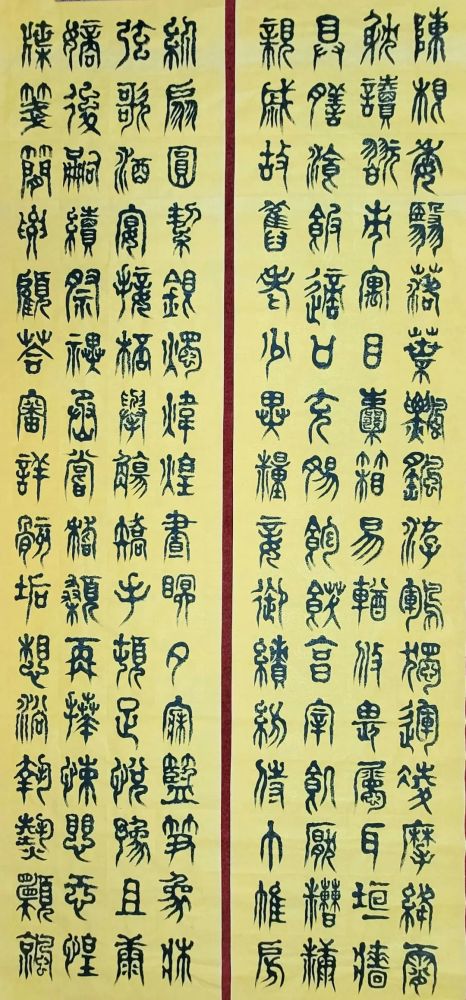 陳根委翳落葉飄颻游鵾獨運凌摩絳霄
耽讀翫市寓目囊箱易輶攸畏屬耳垣牆
具膳飡飯適口充腸飽飫亯宰飢厭糟糠
親戚故舊老少異糧妾御績紡侍巾帷房
紈扇圓絜銀燭煒煌晝眠夕寐籃笋象牀
弦歌酒宴接桮舉觴矯手頓足悅豫且康
嫡後嗣續祭禩烝嘗稽顙再拜悚愳恐惶
牒箋簡要顧荅審詳骸垢想浴執熱願涼